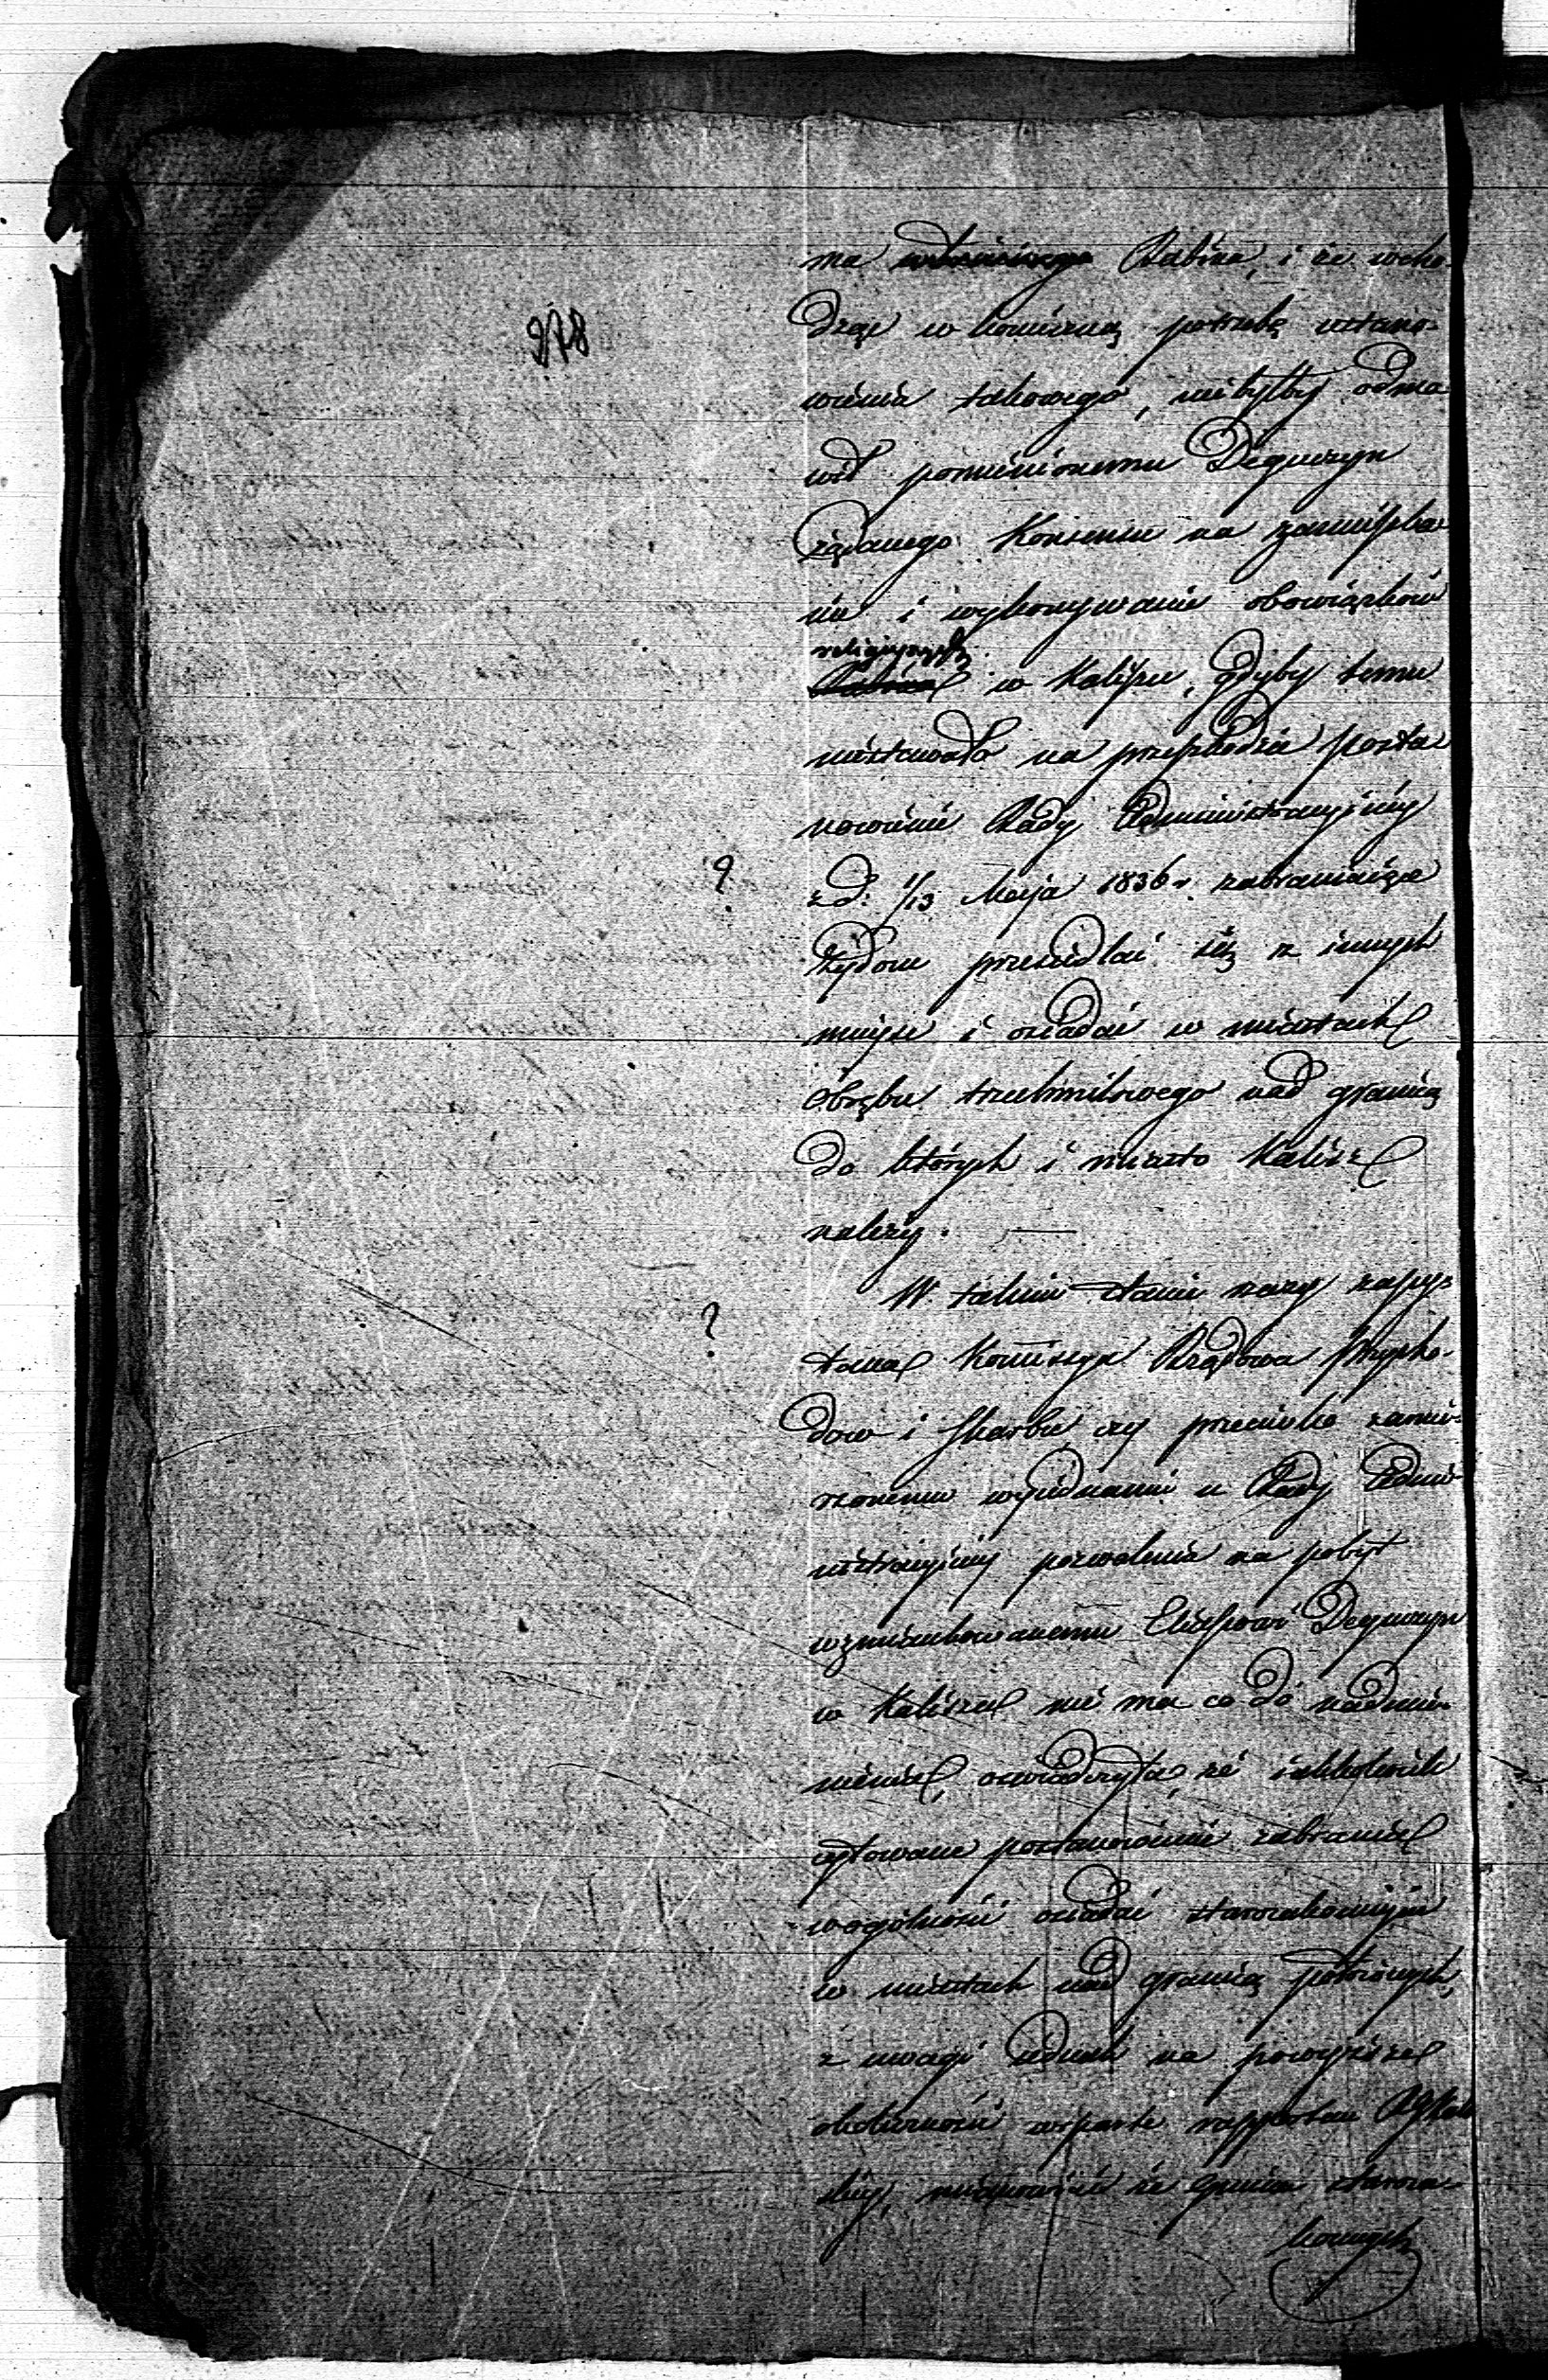 278
ma ~~właściwego~~ Rabina, i że wcho-
dząc w konieczną potrzebę ustano-
wienia takowego, niebyłby odmo
wił pomienionemu Deguczyn
żądanego Konsensu na zamieszka
nie i wykonywanie obowiązków
religijnych
~~Rabina~~ w Kaliszu, gdyby temu
niestawało na przeszkodzie posta
nowienie Rady Administracyjnéy
?
z d. 1/13 Maja 1836 r. zabraniaiące
Żydom przesiedlać się z innych
mieysc i osiadać w miastach
obrębu trzechmilowego nad granicą
do których i miasto Kalisz
należy. —
W takim stanie rzeczy zapy-
?
tana Kommissya Rządowa Przycho-
dów i Skarbu czy przeciwko zamie-
rzonemu wyiednaniu u Rady Admi-
nistracyjnéy pozwolenia na pobyt
wzmiankowanemu Deguczyn
w Kaliszu nie ma co do nadmie-
nienia, oświadczyła, że iakkolwiek
cytowane postanowienie zabrania
wogólności osiadać starozakonnym
w miastach nad granicą położonych,
z uwagi iednak na powyższe
okoliczności wsparte rapportem
skiéy, mianowicie że gmina staroza-
konnych